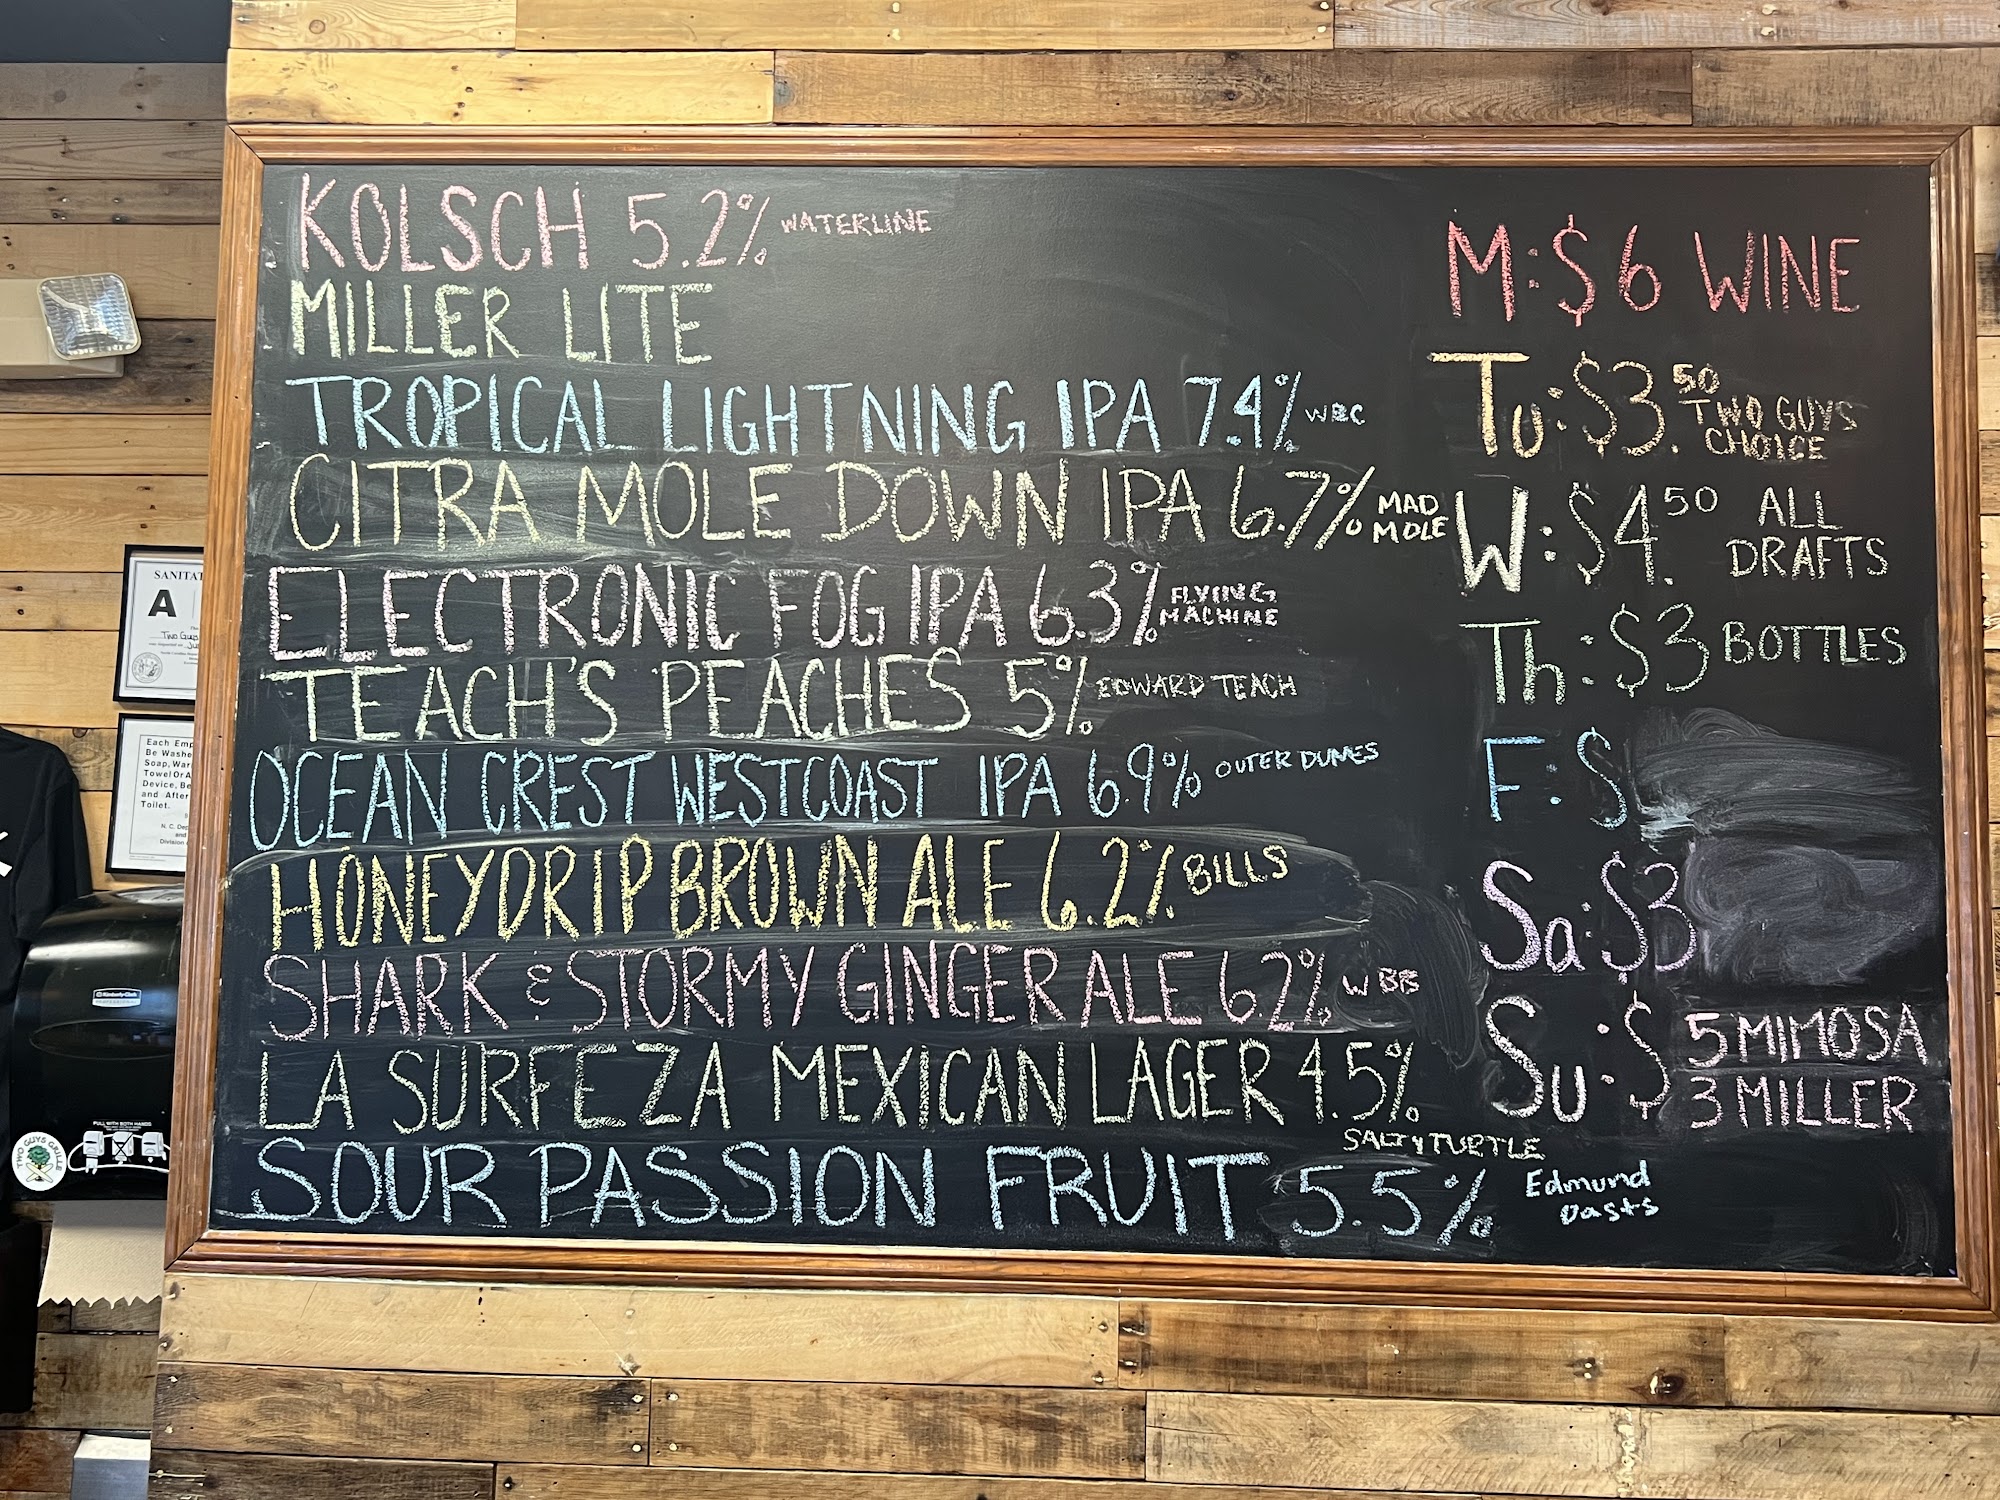 KOLSCH 5.2% WATERLINE
MILLER LITE
TROPICAL LIGHTNING IPA 7.4% WBC
CITRA MOLE DOWN IPA 6.7% MAD
MOLE
ELECTRONIC FOG IPA 6.3% FLYING
MACHINE
TEACH'S PEACHES 5% EDWARD TEACH
OCEAN CREST WESTCOAST IPA 6.9% OUTER DUNES
HONEYDRIP BROWN ALE 6.2% BILLS
SHARK & STORMY GINGER ALE 6.2% WBB
LA SURFEZA MEXICAN LAGER 4.5%
SALTY TURTLE
SOUR PASSION FRUIT 5.5% Edmund
Oasts
M: $6 WINE
Tu: $3.50 TWO GUYS
CHOICE
W: $4.50 ALL
DRAFTS
Th: $3 BOTTLES
F: $
Sa: $3
Su: $ 5 MIMOSA
3 MILLER
SANITAT
A
Two Guys
Each Emp
Be Washe
Soap, War
Towel Or A
Device, Be
and After
Toilet.
N. C. Dep
and
Division
Kimberly-Clark
PROFESSIONAL
PULL WITH BOTH HANDS
TWO GUYS GRILLE